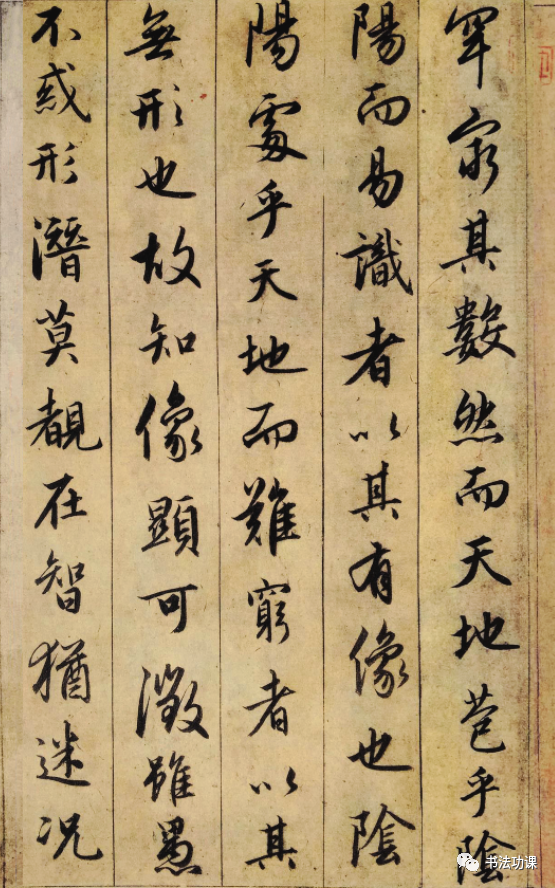 罕窮其數然而天地苞乎陰
陽而易識者以其有像也陰
陽處乎天地而難窮者以其
無形也故知像顯可徵雖愚
不惑形潛莫覩在智猶迷况
书法功课